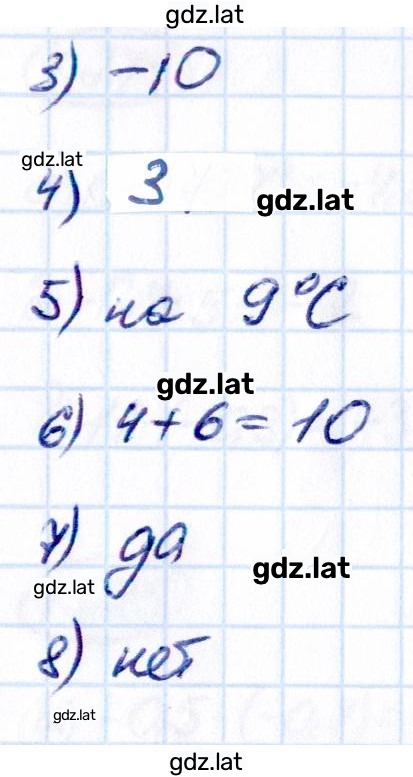 gdz.lat
3) -10
gdz.lat
4) 3
gdz.lat
5) на 9°C
gdz.lat
6) 4+6=10
7) да
gdz.lat
gdz.lat
8) нет
gdz.lat
gdz.lat